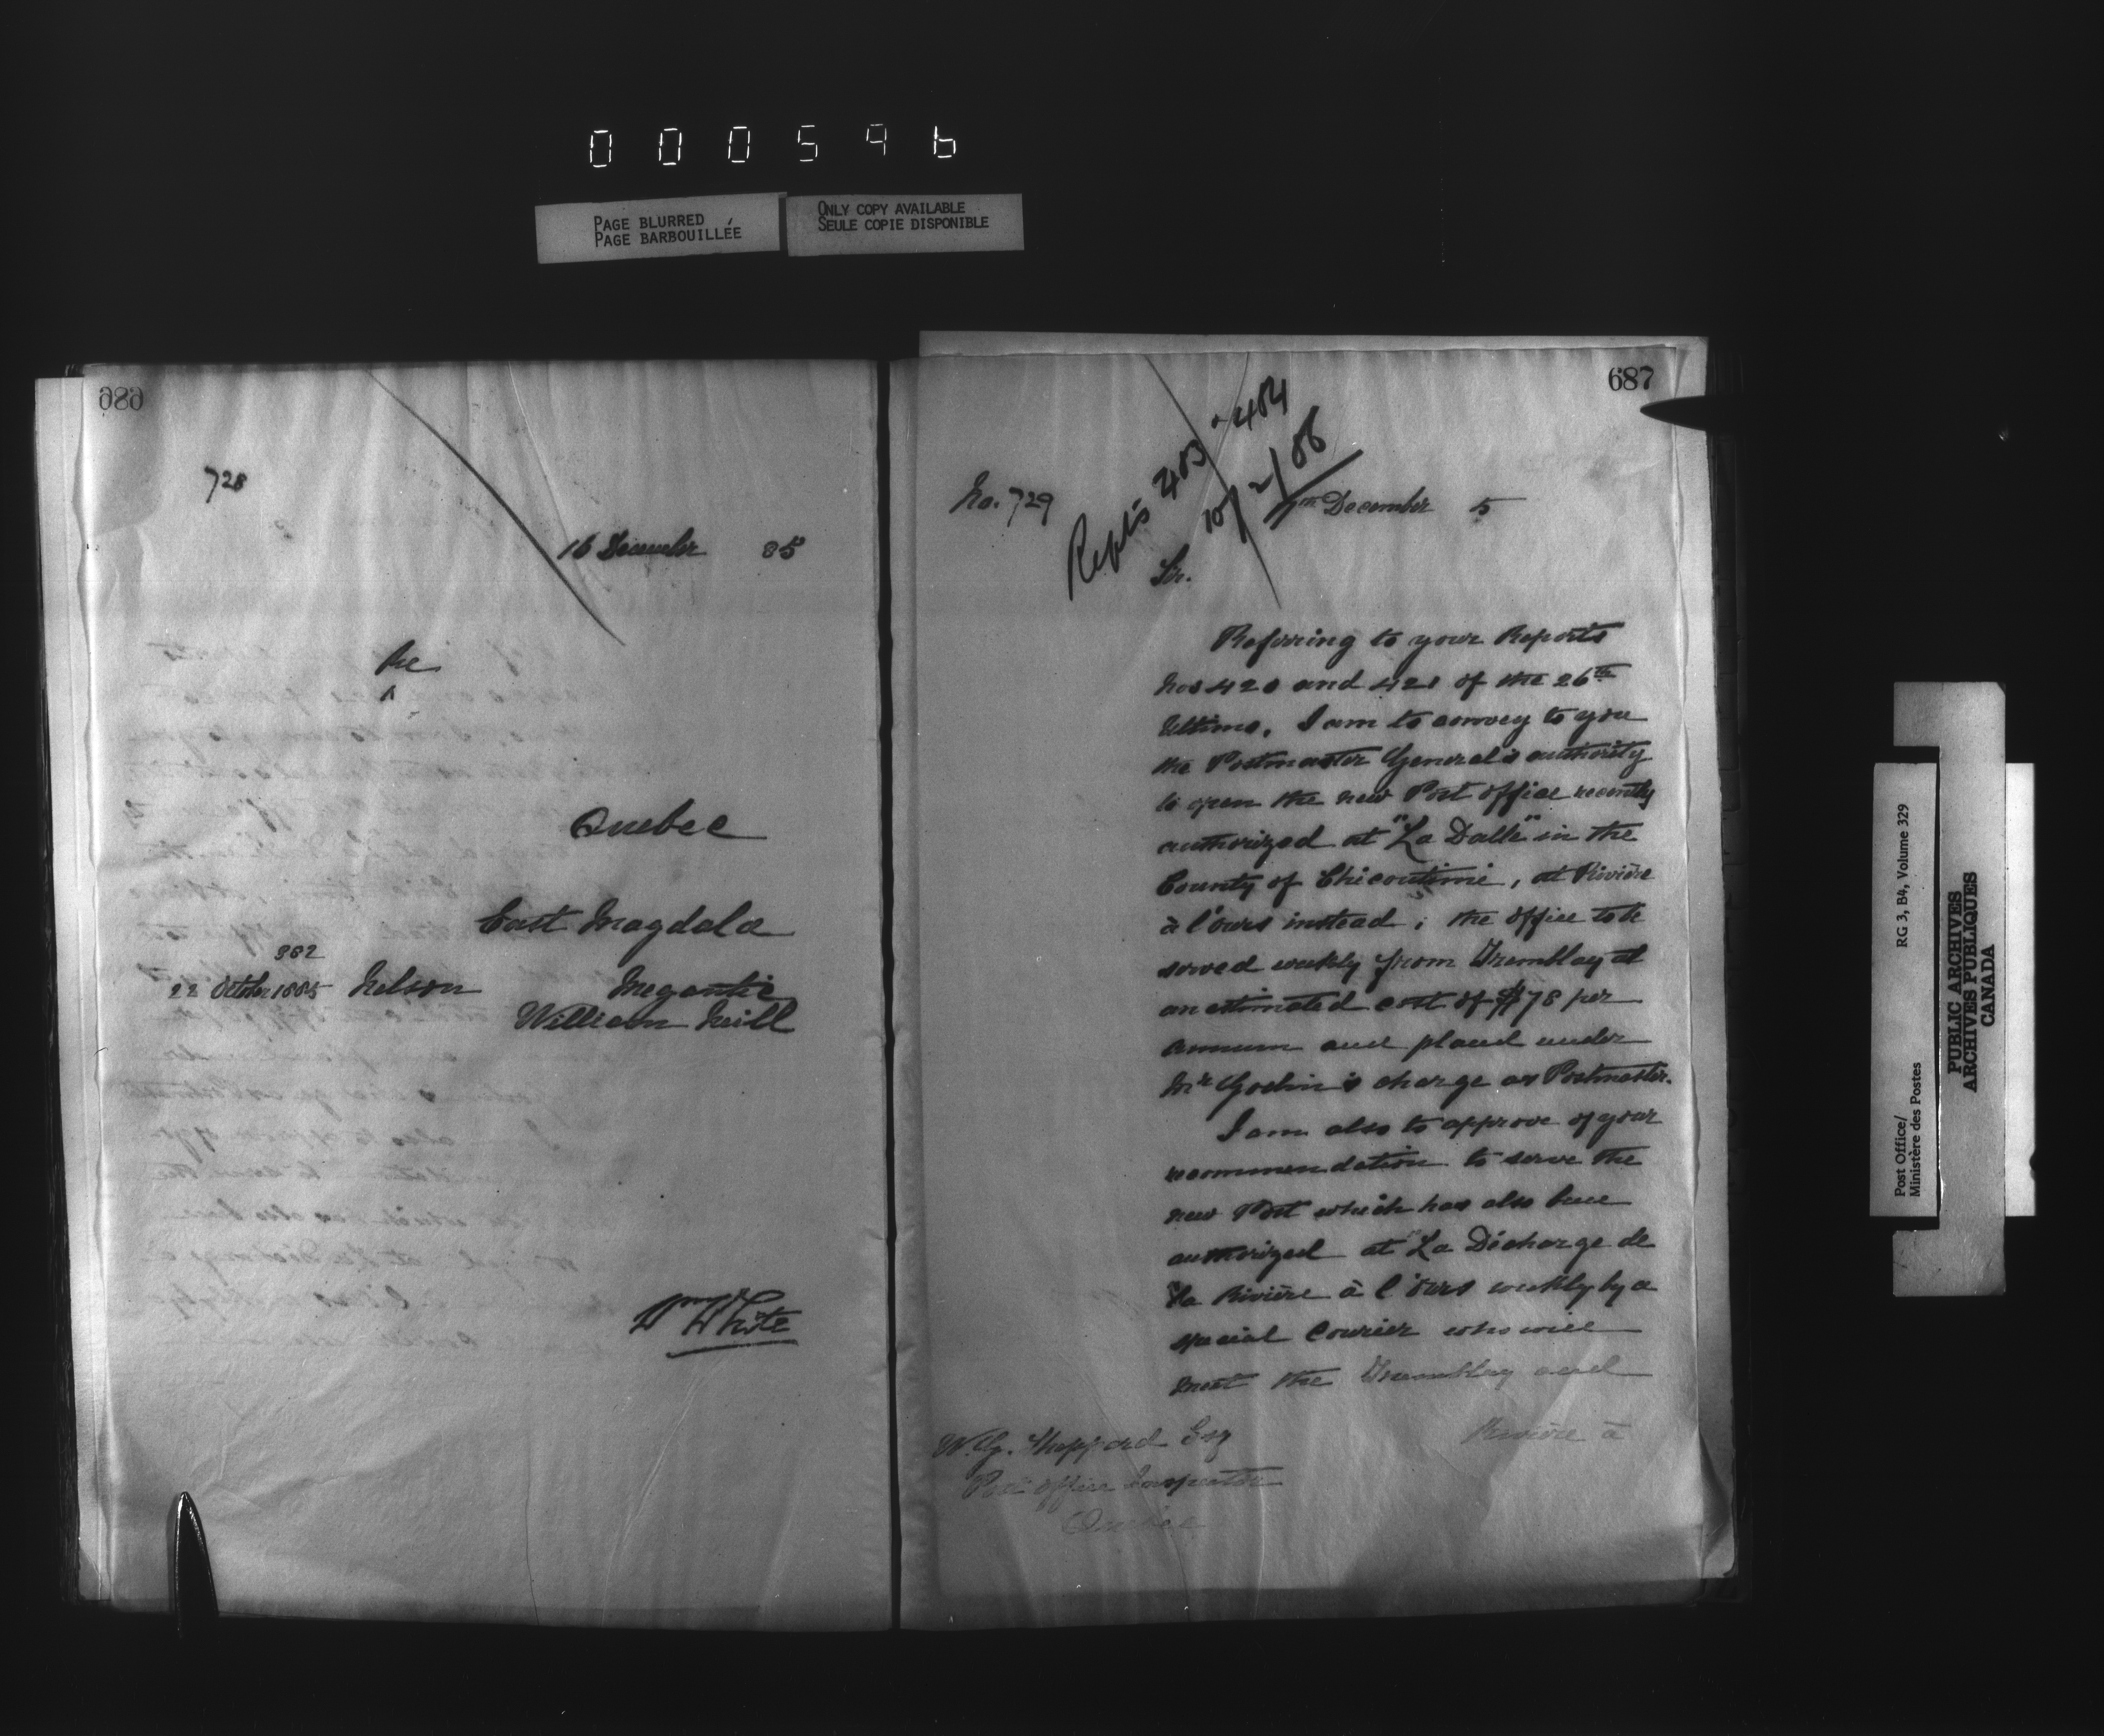 000596
PAGE BLURRED
PAGE BARBOUILLÉE
ONLY COPY AVAILABLE
SEULE COPIE DISPONIBLE
686
728
16 December 85
Re
Quebec
East Magdala
382
22 October 1885 Nelson Megantic
William Neill
Wm White
687
Repts 483 & 484
10/2/86
No. 729
December 5
Sir.
Referring to your Reports
Nos 420 and 421 of the 26th
Ultimo, I am to convey to you
the Postmaster General's authority
to open the new Post Office recently
authorized at "La Dalle" in the
County of Chicoutimi, at Rivière
à l'ours instead; the office to be
served weekly from Tremblay at
an estimated cost of $78 per
annum and placed under
Mr Godin's charge as Postmaster.
I am also to approve of your
recommendation to serve the
new Post which has also been
authorized at "La Décharge de
"la Rivière à l'ours weekly by a
special Courier who will
meet the Tremblay and
Rivière à
W. G. Sheppard Esq
Post Office Inspector
Quebec
Post Office/
Ministère des Postes
RG 3, B4, Volume 329
PUBLIC ARCHIVES
ARCHIVES PUBLIQUES
CANADA